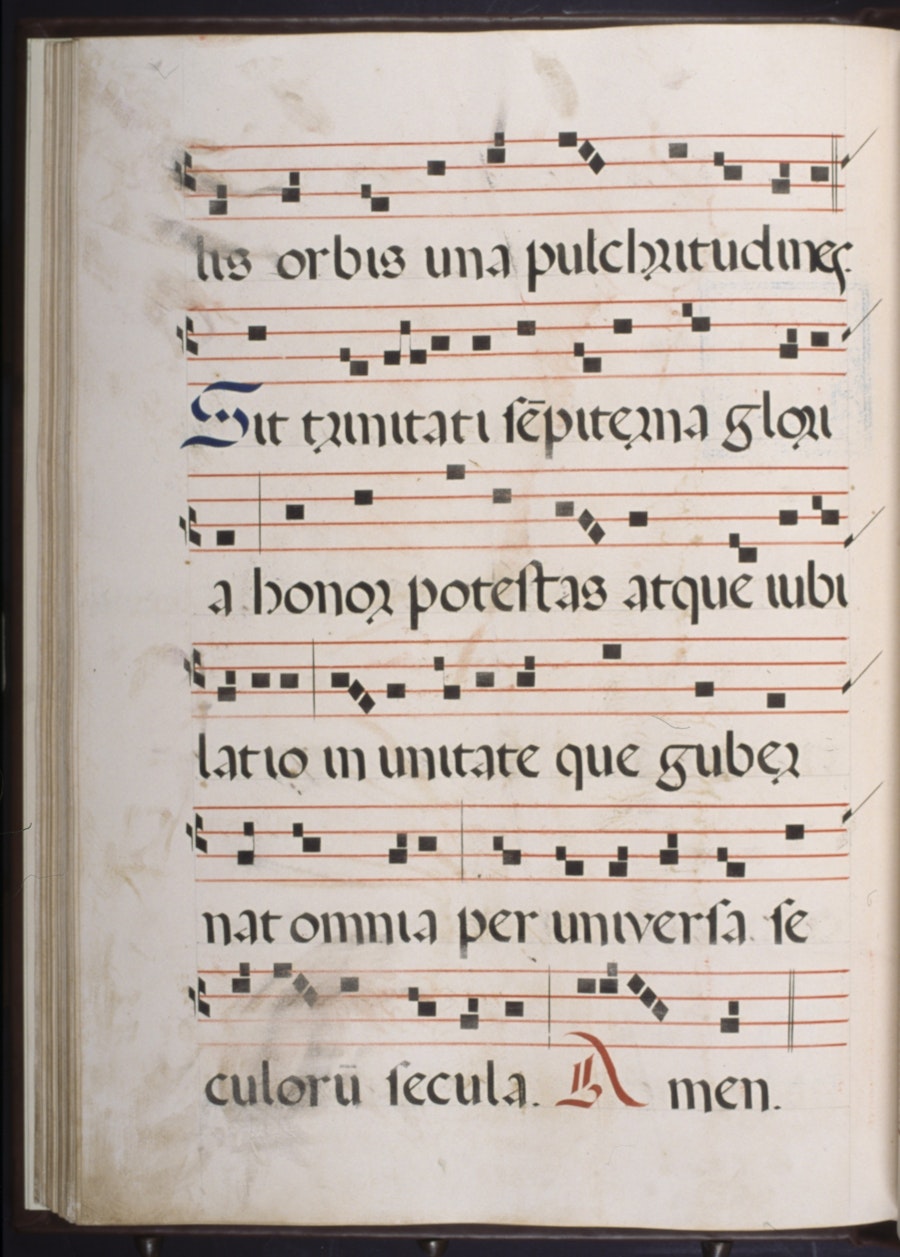 lis orbis una pulchritudines.
Sit trinitati sēpiterna glori
a honor potestas atque iubi
latio in unitate que guber
nat omnia per universa se
culorū secula. A men.